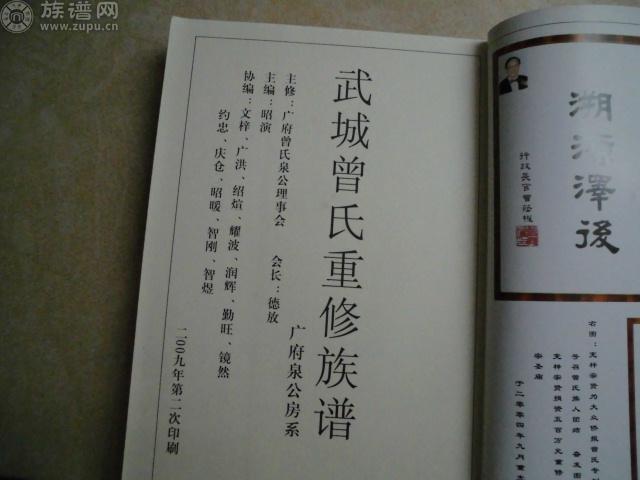 族谱网
www.zupu.cn
武城曾氏重修族谱
广府泉公房系
主修：广府曾氏泉公理事会 会长：德放
主编：昭演
协编：文梓、广洪、绍煊、耀波、润辉、勤旺、镜然
约忠、庆仓、昭暖、智刚、智煜
二00九年第二次印刷
溯源澤後
行政長官曾荫权